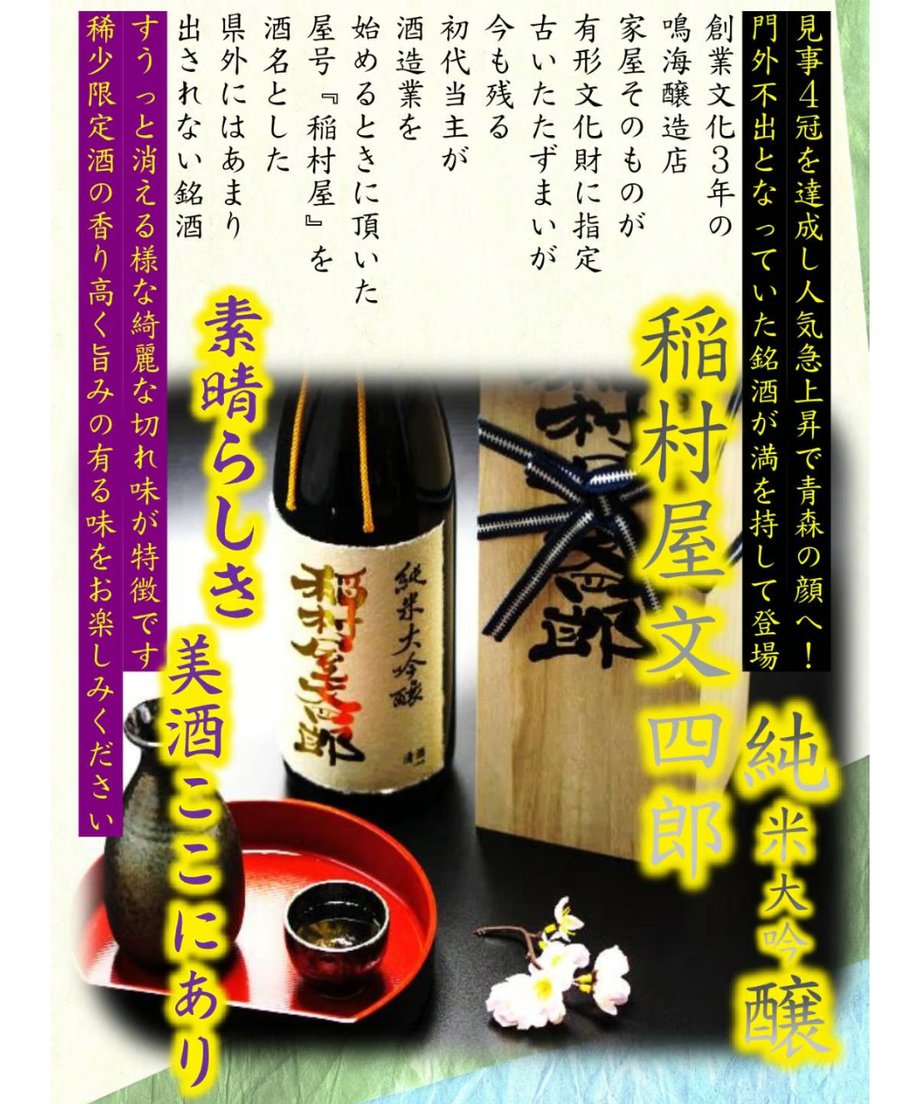 見事4冠を達成し人気急上昇で青森の顔へ！
門外不出となっていた銘酒が満を持して登場
創業文化3年の
鳴海醸造店
家屋そのものが
有形文化財に指定
古いたたずまいが
今も残る
初代当主が
酒造業を
始めるときに頂いた
屋号『稲村屋』を
酒名とした
県外にはあまり
出されない銘酒
すうっと消える様な綺麗な切れ味が特徴です
稀少限定酒の香り高く旨みの有る味をお楽しみください
純米大吟醸
稲村屋文四郎
素晴らしき
美酒ここにあり
純米大吟醸
稲村屋文四郎
清酒
稲村屋文四郎